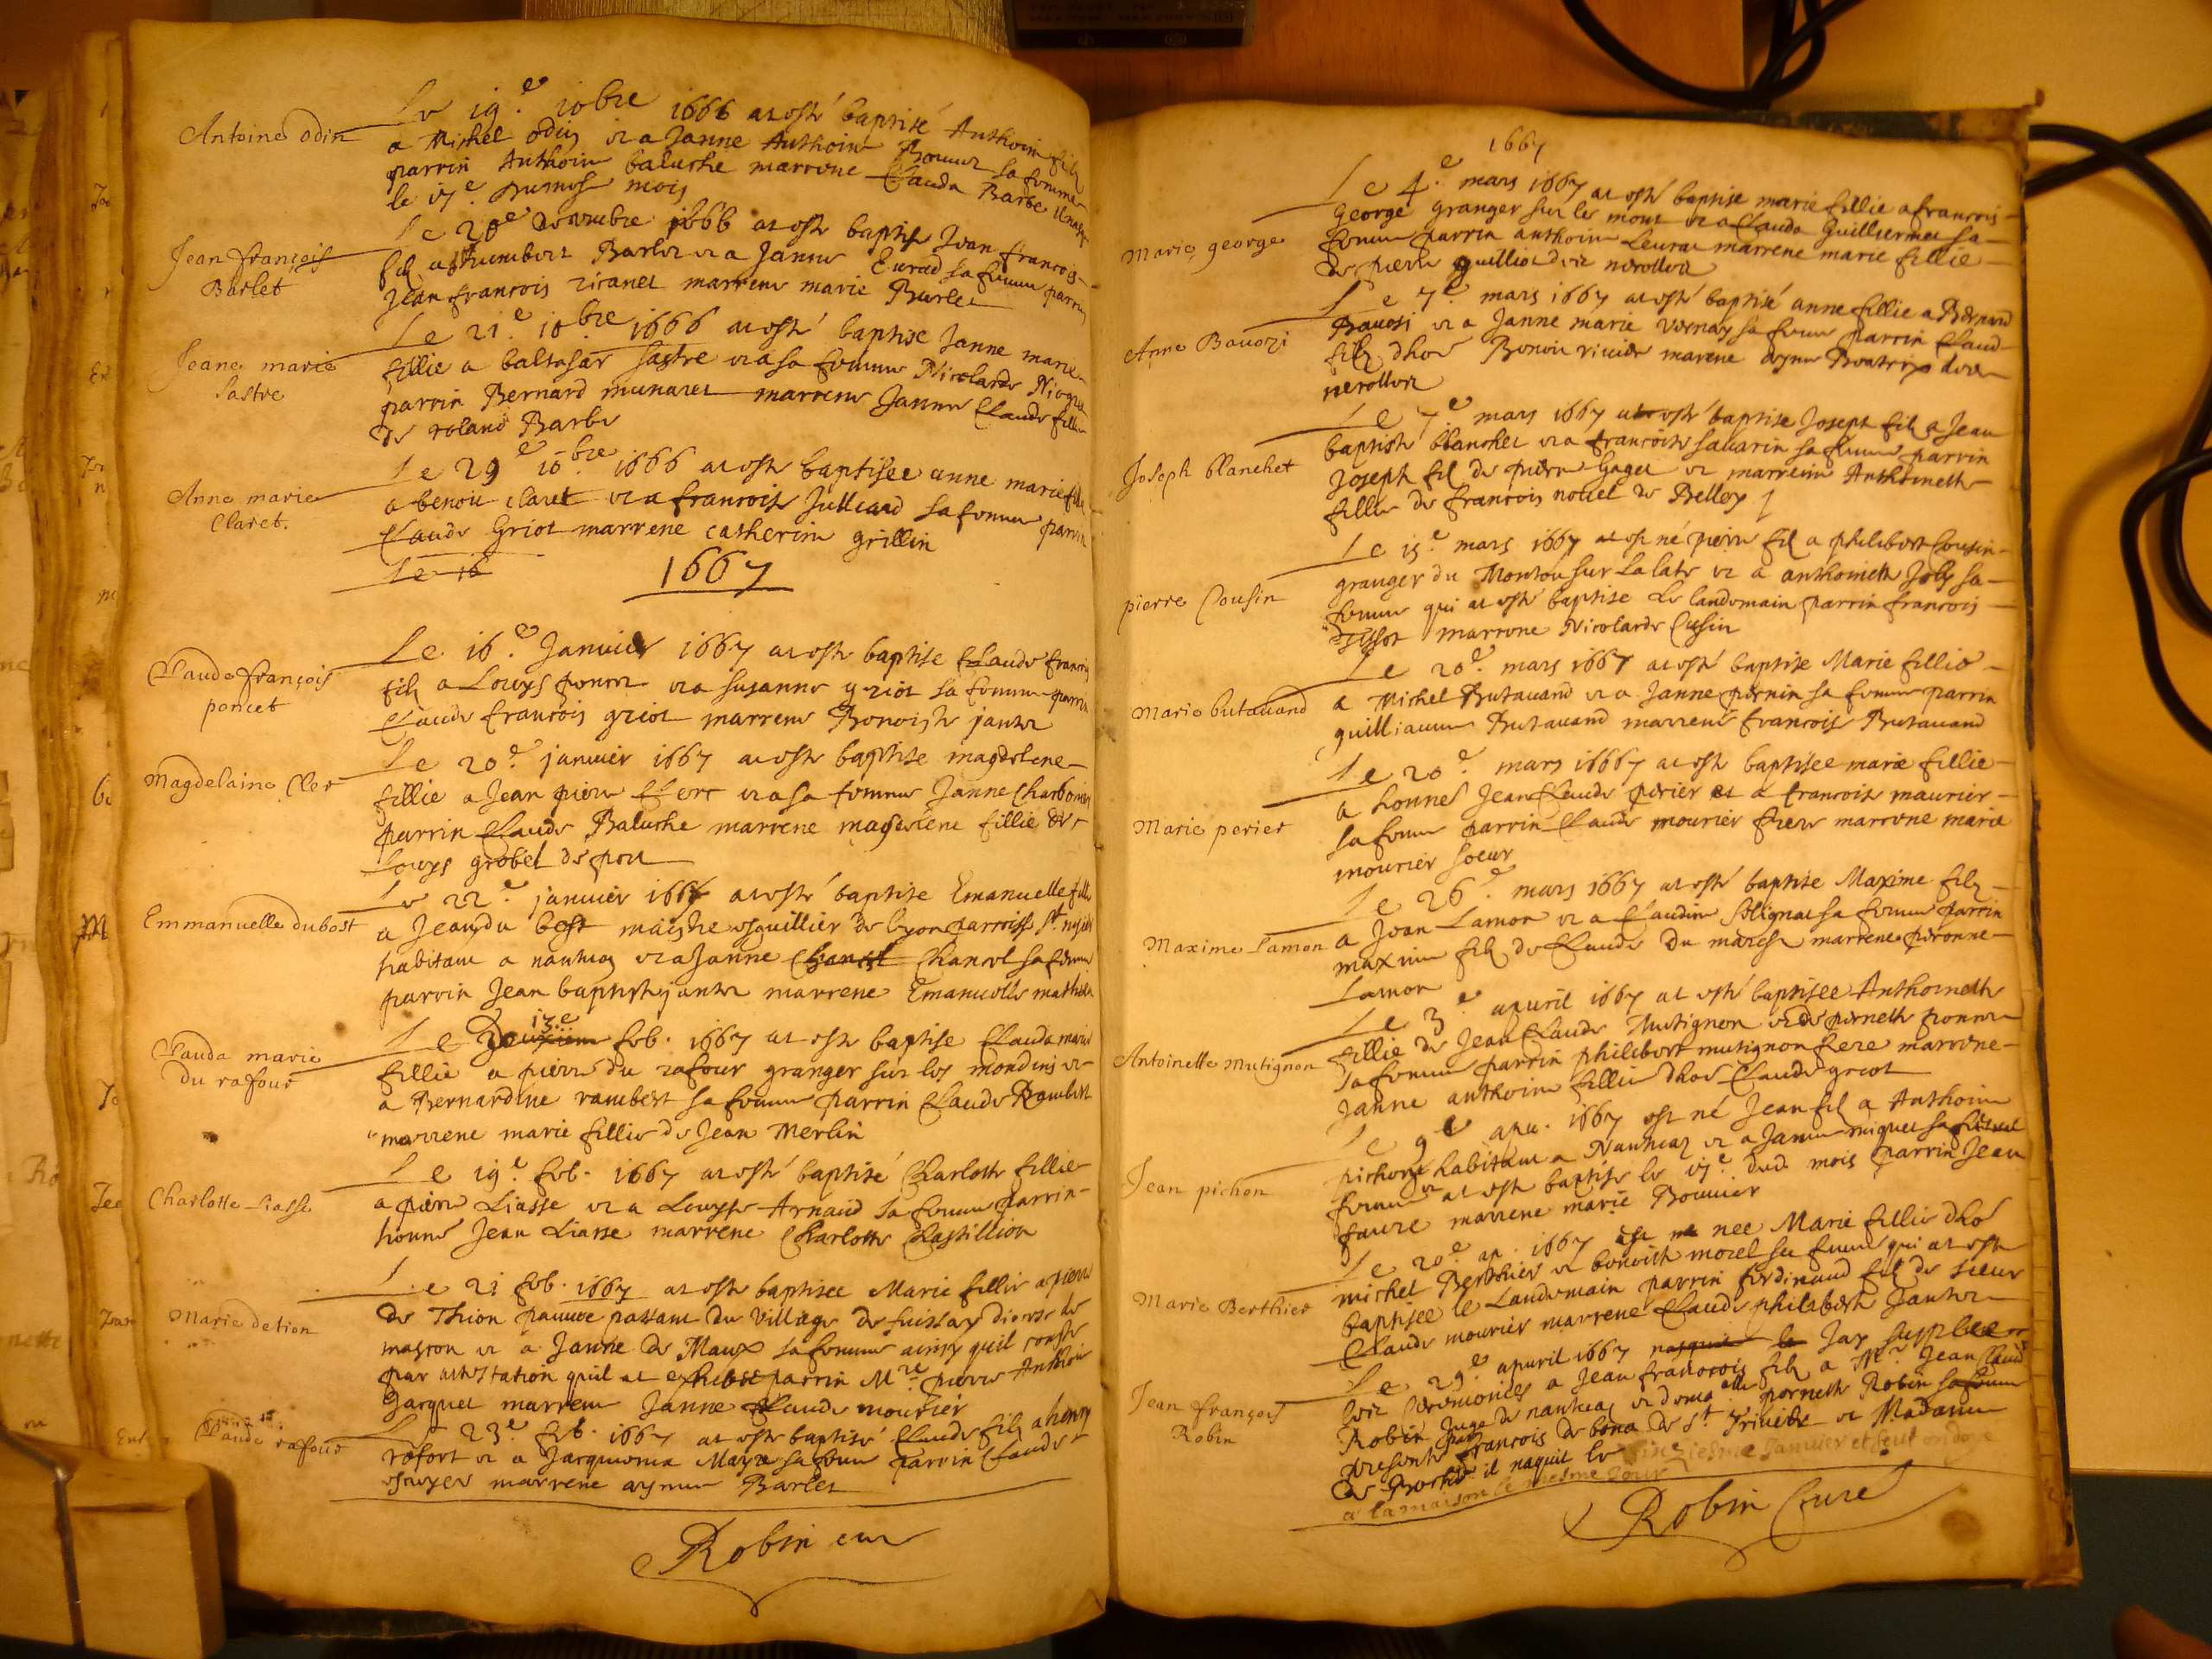 Antoine odin
Le 19.e 10bre 1666 at esté baptisé Anthoine filz
a Michel odin et a Janne Anthoine Bonnet sa femme
parrin Anthoine baluche marrene Clauda Barbe
le 17.e mois
Jean françois
Barlet
Le 20e decembre 1666 at esté baptisé Jean francois
filz a humbert Barlet et a Janne Eurad sa femme parrin
Jean francois ricanet marrene marie Barlet
Jeane marie
Sastre
Le 21.e 10bre 1666 at esté baptise Janne marie
fillie a baltasar sastre et a sa femme Nicolarde
parrin Bernard munaret marrene Janne Claude fillie
de roland Barbe
Anne marie
Claret.
Le 29e 10bre 1666 at esté baptisee anne marie fillie
a benoit claret et a francoise Julliard sa femme parrin
Claude Griot marrene catherine grillin
Le 16
1667
Claude françois
poncet
Le 16.e Januier 1667 at esté baptise Claude francois
filz a Louys poncet et a susanne griot sa femme parrin
Claude francois griot marrene Benoiste jantet
Magdelaine Cler
Le 20.e januier 1667 at esté baptise magdelene
fillie a Jean pierre Clerc et a sa femme Janne Charbonier
parrin Claude Baluche marrene magdelene fillie de
Louys grobel de port
Emmanuelle dubost
Le 22.e januier 1667 at esté baptise Emanuelle fillie
a Jean du bost maistre esguillier de lyon parroisse st.
habitant a nantua et a Janne Chanel Chanel sa femme
parrin Jean baptiste jantet marrene Emanuelle
Clauda marie
du rafour
13.e
Le Deuxiem feb. 1667 at esté baptise Clauda marie
fillie a pierre du rafour granger sur les mondins et
a Bernardine rambert sa femme parrin Claude Rambert
marrene marie fillie de Jean Merlin
Charlotte Liasse
Le 19.e feb. 1667 at esté baptisé Charlotte fillie
a piere Liasse et a Louyse Arnaud sa femme parrin
honne Jean Liasse marrene Charlotte Chastillion
Marie detion
Le 21 feb. 1667 at esté baptisee Marie fillie a pierre
de Thion pauure passant du village de fuissay diocese de
mascon et a Janne de Maux sa femme ainsy quil conste
par attestation quil at exhibee parrin Mre pierre Anthoine
Jacquet marrene Janne Claude mourier
Claude rafour
Le 23.e feb. 1667 at esté baptisé Claude filz a henry
rafort et a Jacquema Mayza sa femme parrin Claude
marrene aymee Barlet
Robin cure
1667
Marie george
Le 4.e mars 1667 at esté baptise marie fillie a francois
George granger sur les mont et a Clauda Guilliermet sa
femme parrin anthoine Leurat marrene marie fillie
de pierre guilliot dict nerollet
Anne Bauozi
Le 7.e mars 1667 at esté baptisé anne fillie a Bernard
Bauosi et a Janne marie vernay sa femme parrin Claude
filz dhoe Benoit marene aymee Beatrix dicte
nerollet
Joseph blanchet
Le 7e mars 1667 at esté baptise Joseph filz a Jean
baptiste blanchet et a francoise sauarin sa femme parrin
Joseph fil de pierre Gaget et marreine Anthoinette
fillie de francois nouel de Belley
pierre Cousin
Le 15.e mars 1667 at est né pierre fil a philibert Cousin
granger du Monton sur Lalate et a anthoinette Joly sa
femme qui at esté baptise Le landemain parrin francois
marrene Nicolarde Cusin
Marie butauand
Le 20.e mars 1667 at esté baptise Marie fillie
a Michel Butauand et a Janne pernin sa femme parrin
guilliaume Butauand marrene francoise Butauand
Marie perier
Le 20.e mars 16667 at esté baptisee marie fillie
a honneste Jean Claude perier et a francoise maurier
sa femme parrin Claude mourier frere marrene marie
mourier soeur
Maxime Lamon
Le 26.e mars 1667 at esté baptise Maxime filz
a Jean Lamon et a Claudine Solignat sa femme parrin
maxime filz de Claude Du marest marrene peronne
Lamon
Antoinette Mutignon
Le 3.e apuril 1667 at esté baptisee Anthoinette
fillie de Jean Claude Mutignon et de pernette poncet
sa femme parrin philibert mutignon frere marrene
Janne anthoine fillie dhoe Claude griot
Jean pichon
Le 9e apu. 1667 est né Jean fil a Anthoine
pichon habitant a Nantuaz et a Janne miguet sa femme
et at esté baptise le 17.e dud. mois parrin Jean
faure marrene marie Bouuier
Marie Berthier
Le 20.e ap. 1667 est nee Marie fillie dhoe
michel Berthier et benoiste morel sa femme qui at esté
baptisee le Landemain parrin ferdinand fil de sieur
Claude mourier marrene Claude philiberte Jantet
Jean françois
Robin
Le 29.e apuril 1667 Jay suppleer
les ceremonies a Jean francois filz a Mr. Jean Claude
Robin Juge de nantuaz et dema.elle pernette Robin sa femme
presents parrin francois de bona de St. Triuier et Madame
de il naquit le Januier et feut ondoye
a la maison le mesme jour
Robin Cure